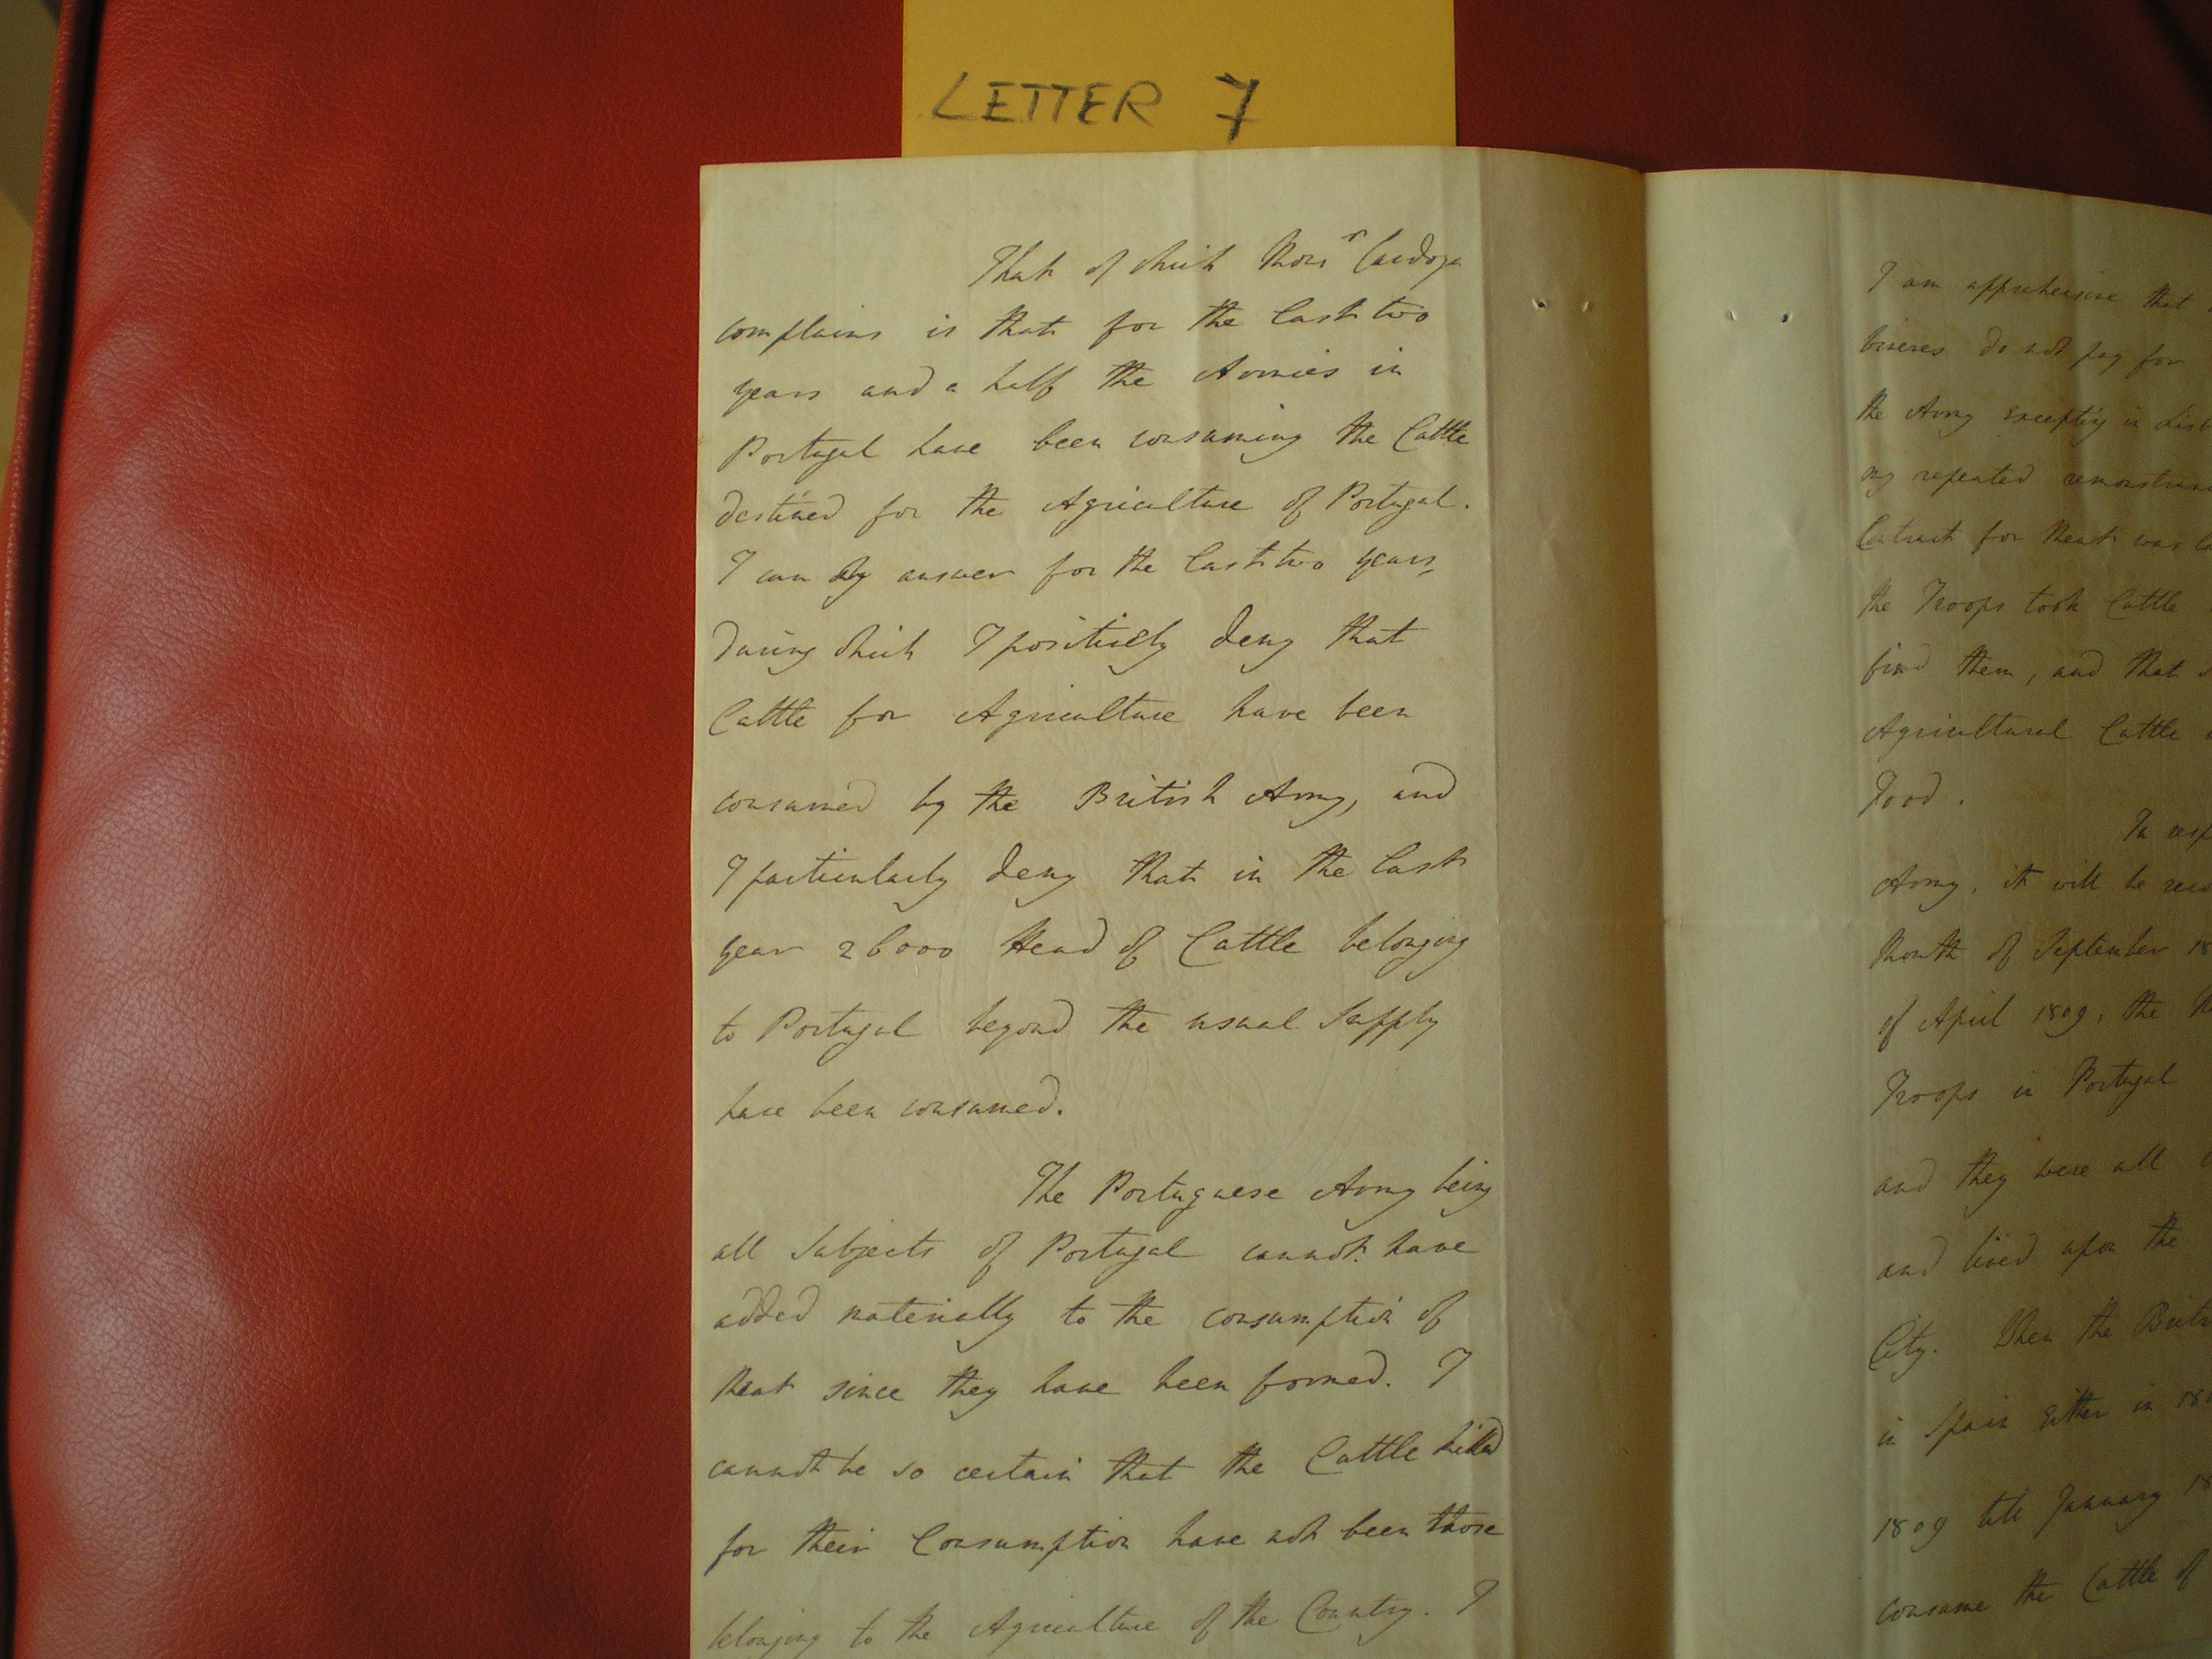 LETTER 7
That of which Monsr Cardoza
complains is that for the last two
years and a half the Armies in
Portugal have been consuming the Cattle
destined for the Agriculture of Portugal.
I can only answer for the last two years,
during which I positively deny that
Cattle for Agriculture have been
consumed by the British Army, and
I particularly deny that in the last
year 26000 Head of Cattle belonging
to Portugal beyond the usual Supply
have been consumed.
The Portuguese Army being
all Subjects of Portugal cannot have
added materially to the consumption of
Meat since they have been formed. I
cannot be so certain that the Cattle killed
for their Consumption have not been those
belonging to the Agriculture of the Country. I
I am apprehensive that
do not pay for
the Army excepting in
my repeated
Contract for Meat was
the Troops took Cattle
find them, and that
Agricultural Cattle
Food.
In
Army, it will be
Month of September 18
of April 1809, the
Troops in Portugal
and they were all
and lived upon the
City. When the
in Spain either in 180
1809 till January 18
consume the Cattle of